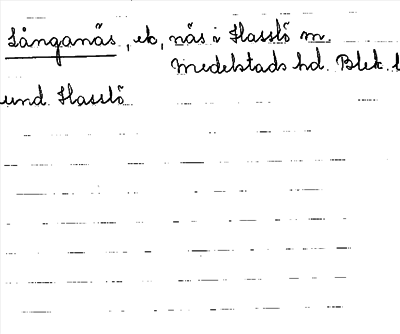 Långanäs, ek, näs i Hasslö m.
Medelstads hd. Blek. l
und. Hasslö